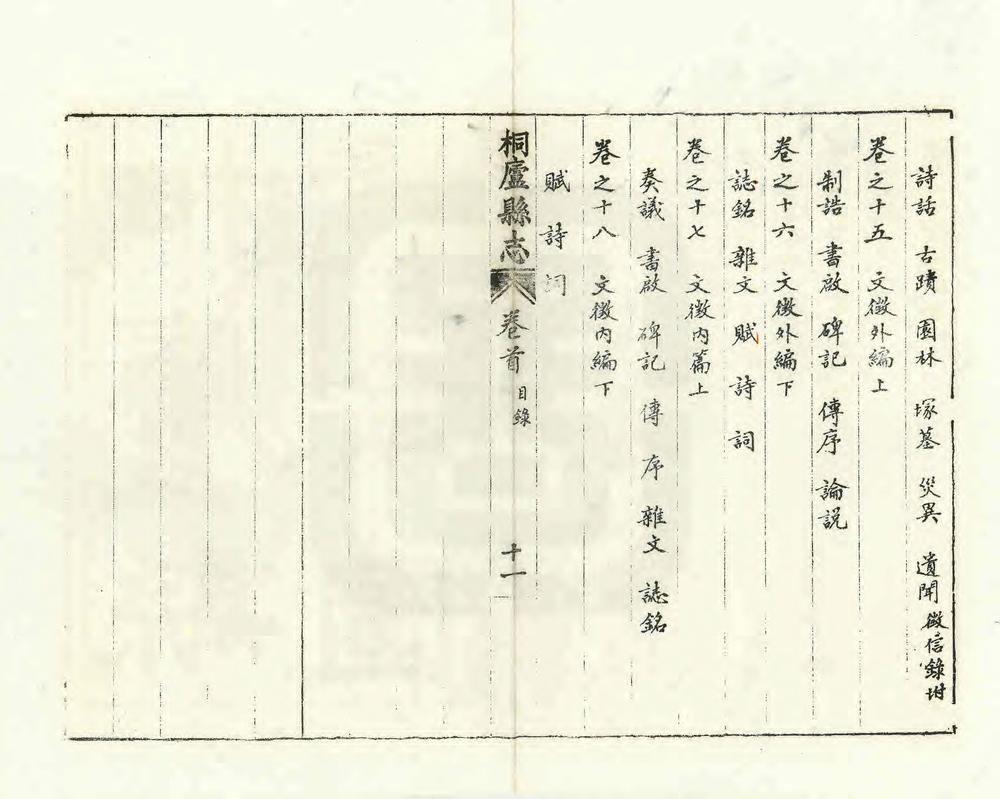 詩話 古蹟 園林 塚墓 災異 遺聞 徵信錄坿
卷之十五 文徵外編上
制誥 書啟 碑記 傳序 論説
卷之十六 文徵外編下
誌銘 雜文 賦 詩 詞
卷之十七 文徵內篇上
奏議 書啟 碑記 傳 序 雜文 誌銘
卷之十八 文徵內編下
賦 詩 詞
桐廬縣志 卷首 目錄 十一